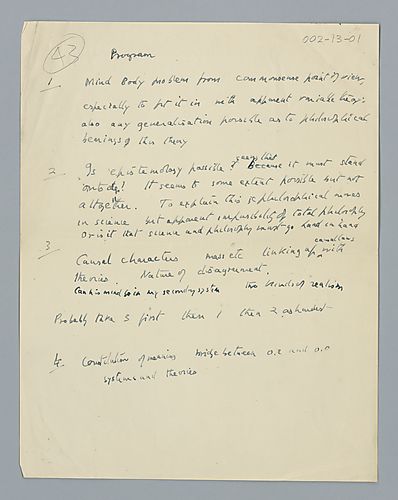 002-13-01
43
Program
1 Mind Body problem from commonsense point of view,
especially to fit it in with apparent variable theory;
also any generalisation possible as to philosophical
bearings of this theory
2 Is epistemology possible? seems that Because it must stand
outside! It seems to some extent possible but not
altogether. To explain this is philosophical moves
in science but apparent impossibility of total philosophy
Or is it that science and philosophy must go hand in hand
3
Causal characters mass etc linking up with
theories. Nature of disagreement.
is mind so in my secondary system two kinds of realism
Probably take 3 first then 1 then 2
4 Constitution of meaning bridge between o.e and o.p
systems and theories